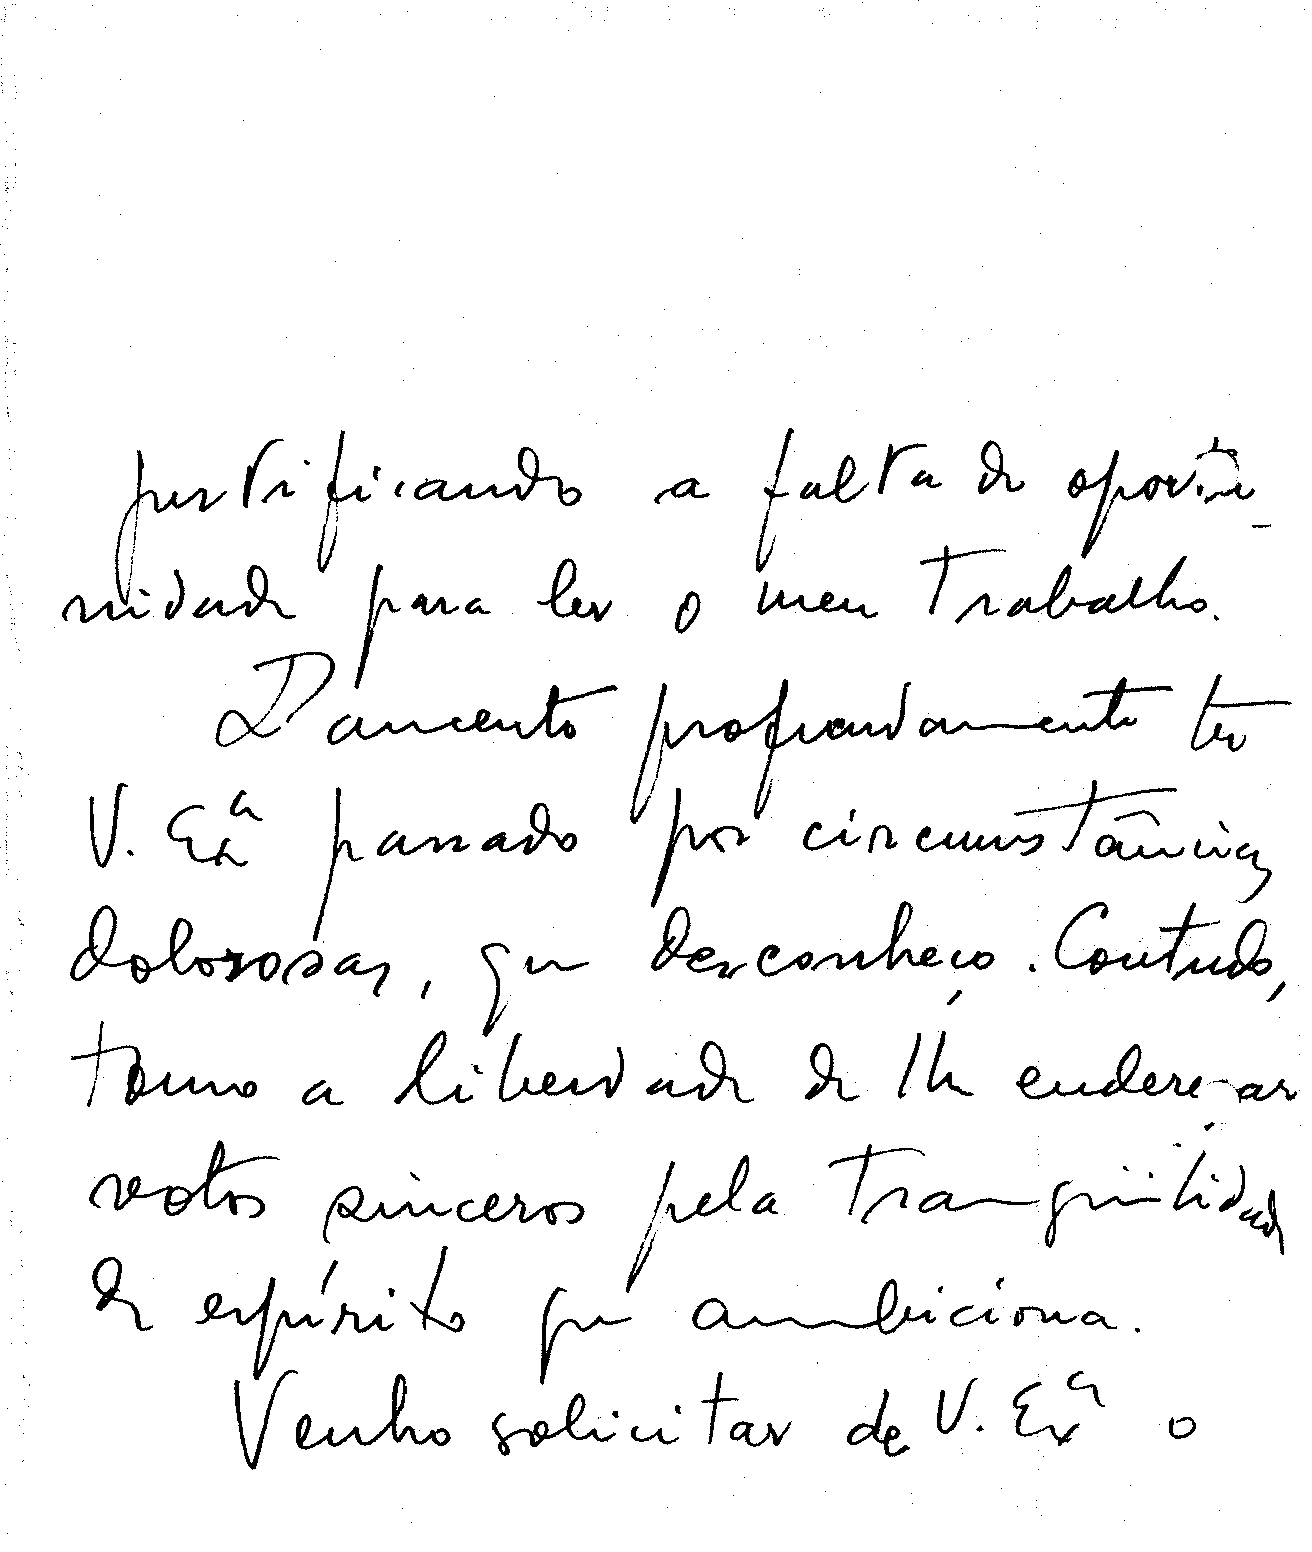 justificando a falta de oportu-
nidade para ler o meu trabalho.
Lamento profundamente ter
V. Exª passado por circunstâncias
dolorosas, que desconheço. Contudo,
tomo a liberdade de lhe endereçar
votos sinceros pela tranqüilidade
de espírito que ambiciona.
Venho solicitar de V. Exª o